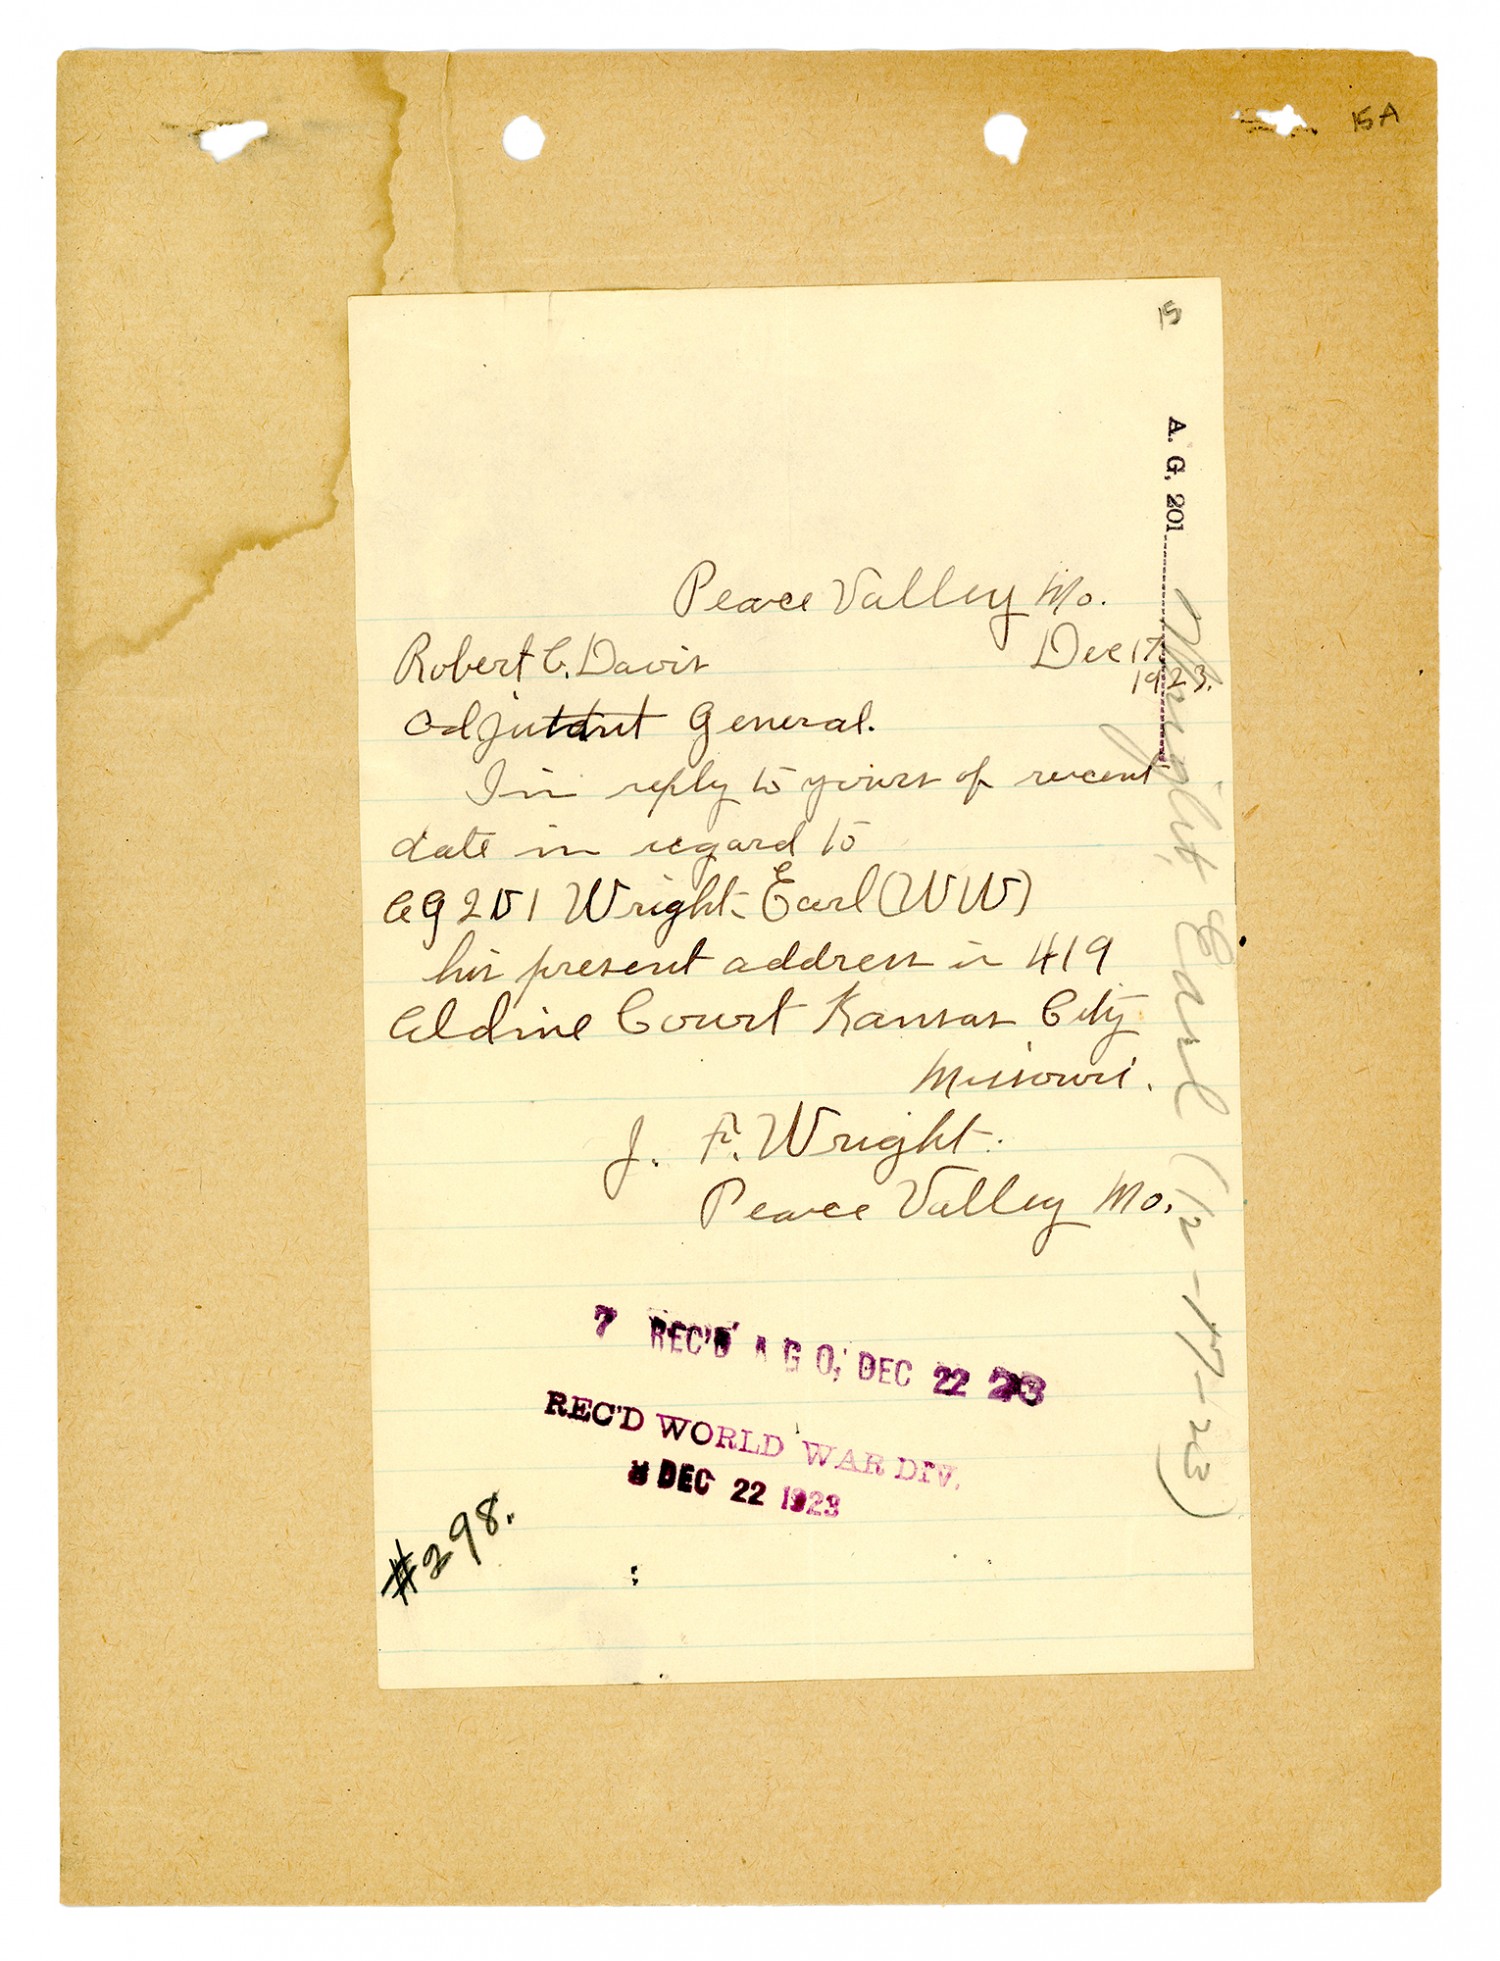 15A
15
A. G. 201
Wright, Earl (12-17-23)
Peace Valley Mo.
Dec 17
1923.
Robert C. Davis
Adjutant General.
I in reply to yours of recent
date in regard to
AG 201 Wright, Earl (WW)
his present address is 419
Aldine Court Kansas City
Missouri.
J. F. Wright.
Peace Valley Mo.
7 REC'D A G O, DEC 22 23
REC'D WORLD WAR DIV.
8 DEC 22 1923
#298.